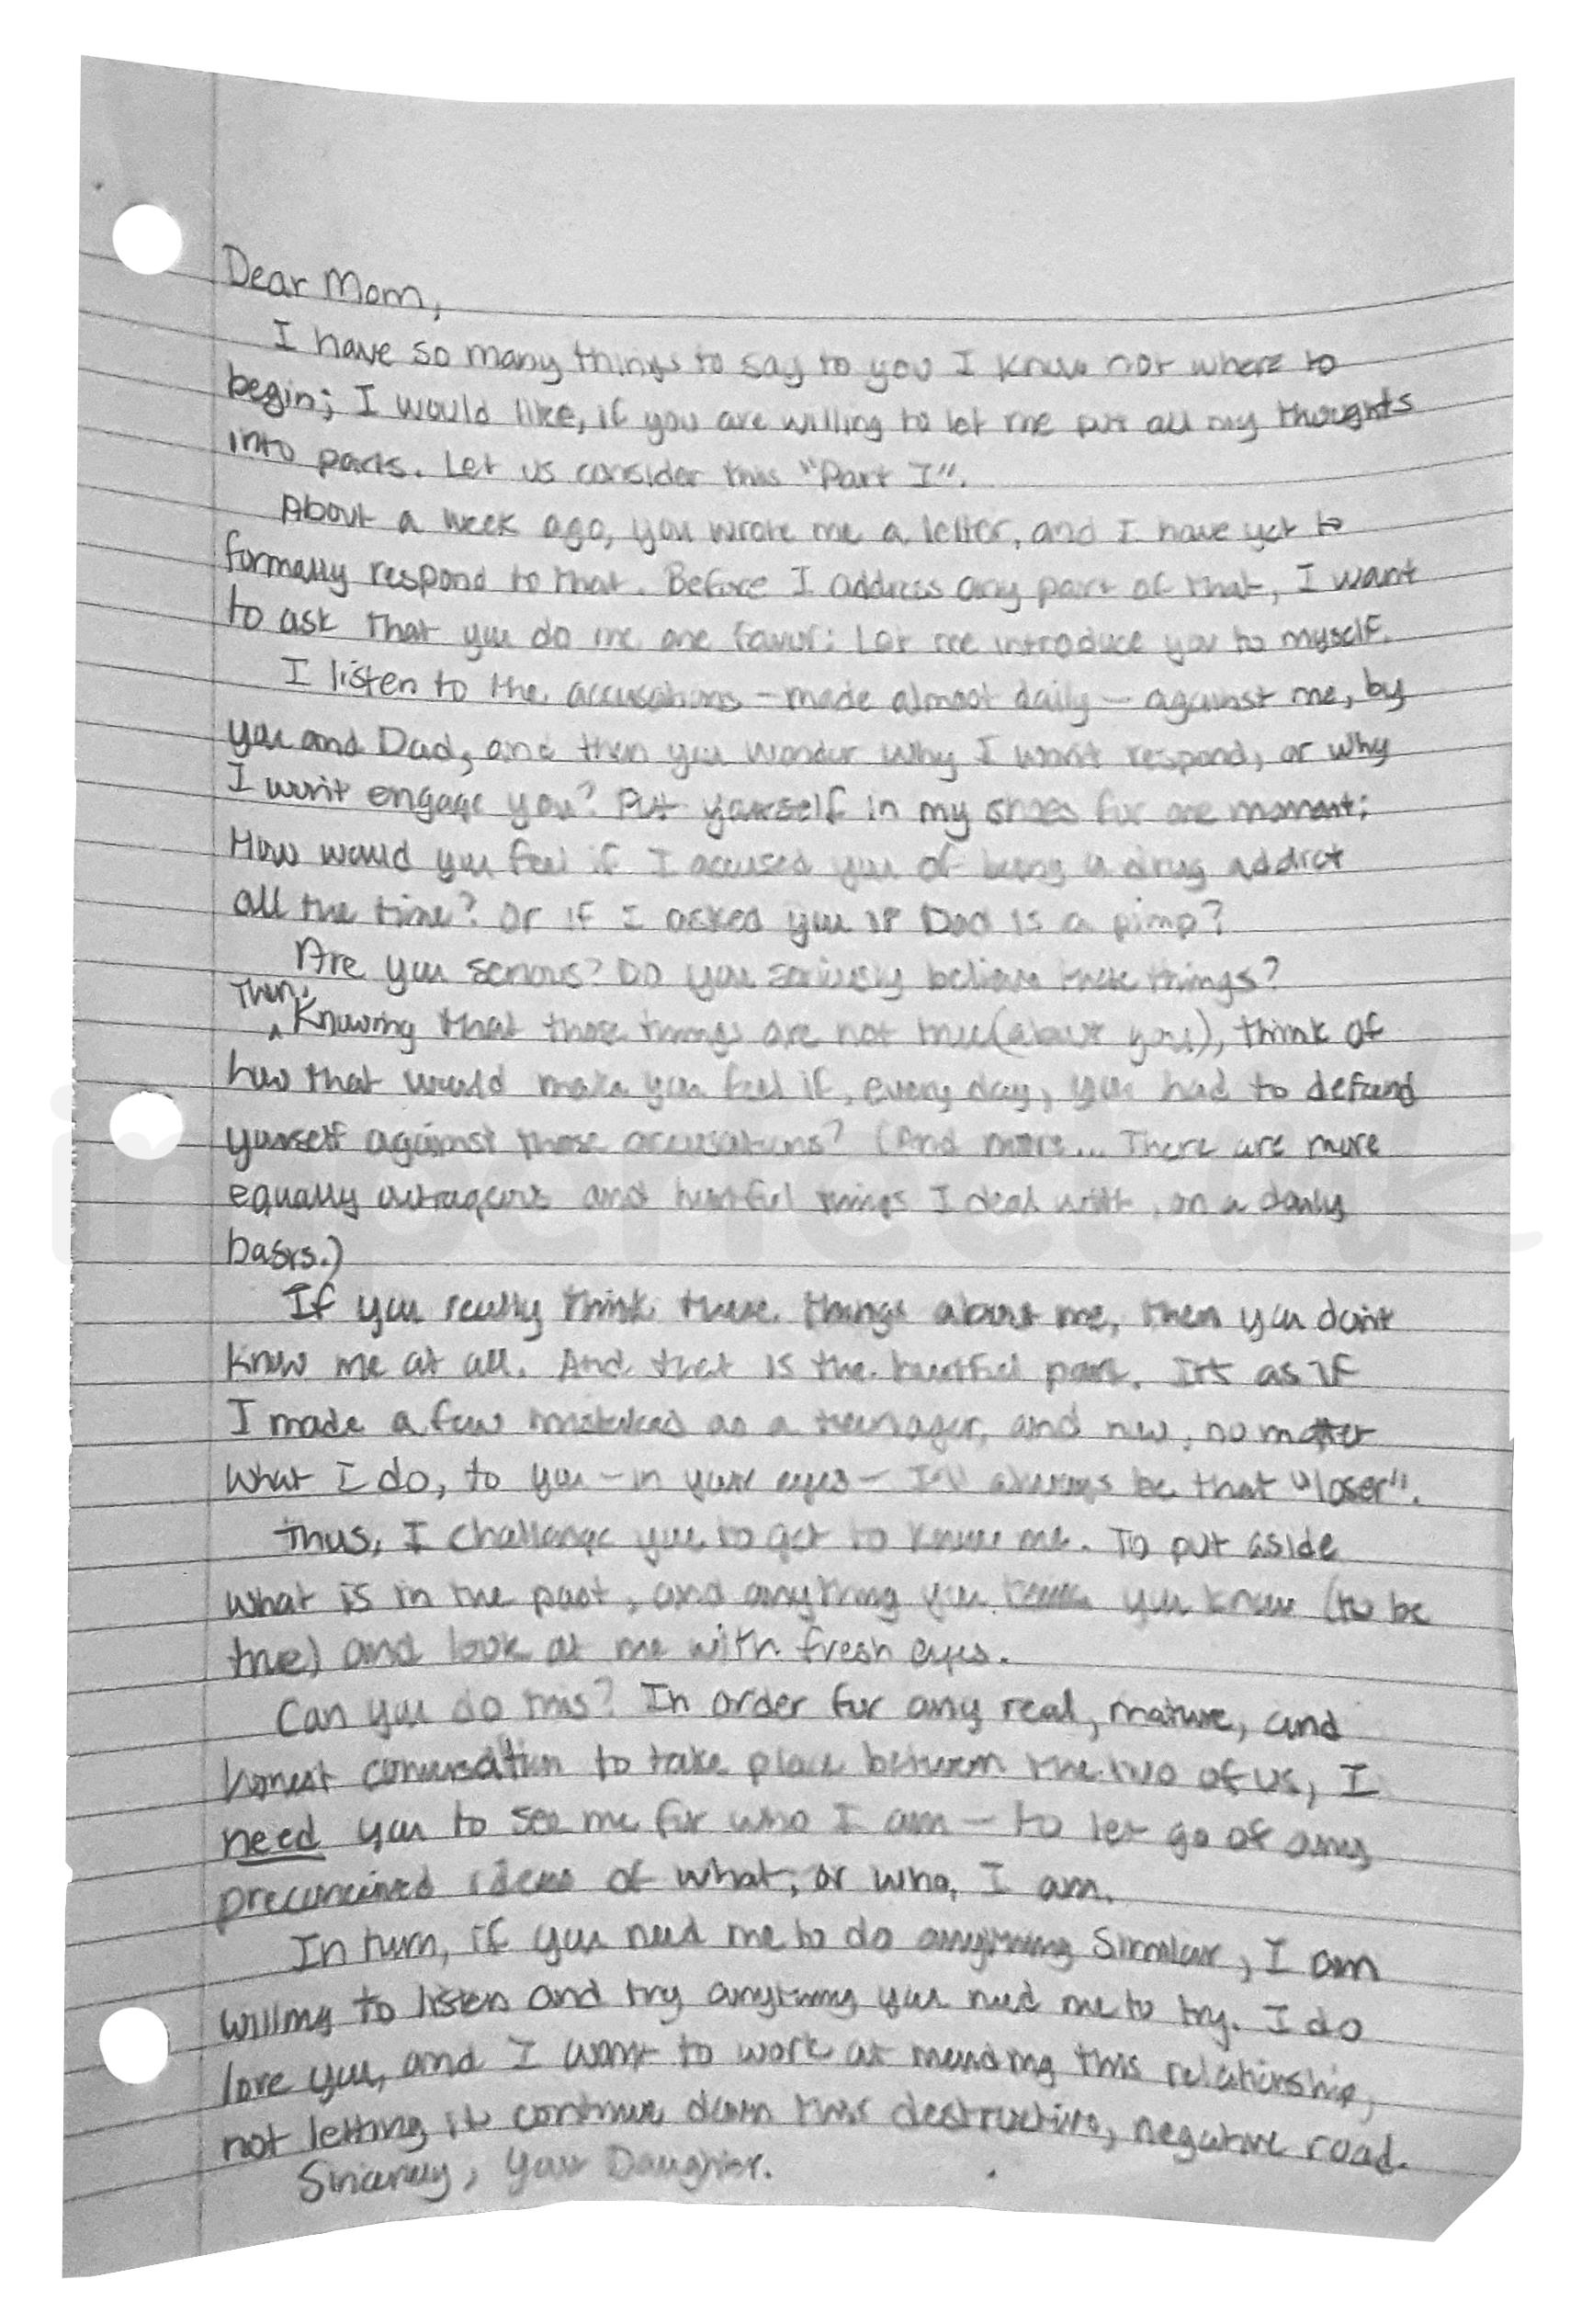 Dear Mom,
I have so many things to say to you I know not where to
begin; I would like, if you are willing to let me put all my thoughts
into parts. Let us consider this "Part I".
About a week ago, you wrote me a letter, and I have yet to
formally respond to that. Before I address any part of that, I want
to ask that you do me one favor: Let me introduce you to myself.
I listen to the accusations — made almost daily — against me, by
you and Dad, and then you wonder why I won't respond, or why
I won't engage you? Put yourself in my shoes for one moment:
How would you feel if I accused you of being a drug addict
all the time? Or if I asked you if Dad is a pimp?
Are you serious? Do you seriously believe these things?
Then,
Knowing that those things are not true (about you), think of
how that would make you feel if, every day, you had to defend
yourself against those accusations? (And more... There are more
equally outrageous and hurtful things I deal with, on a daily
basis.)
If you really think these things about me, then you don't
know me at all. And that is the hurtful part. It's as if
I made a few mistakes as a teenager, and now, no matter
what I do, to you — in your eyes — I'll always be that "loser".
Thus, I challenge you to get to know me. To put aside
what is in the past, and anything you you know (to be
true) and look at me with fresh eyes.
Can you do this? In order for any real, mature, and
honest conversation to take place between the two of us, I
need you to see me for who I am — to let go of any
preconceived ideas of what, or who, I am.
In turn, if you need me to do anything similar, I am
willing to listen and try anything you need me to try. I do
love you, and I want to work at mending this relationship,
not letting it continue down this destructive, negative road.
Sincerely, Your Daughter.
imperfect ink